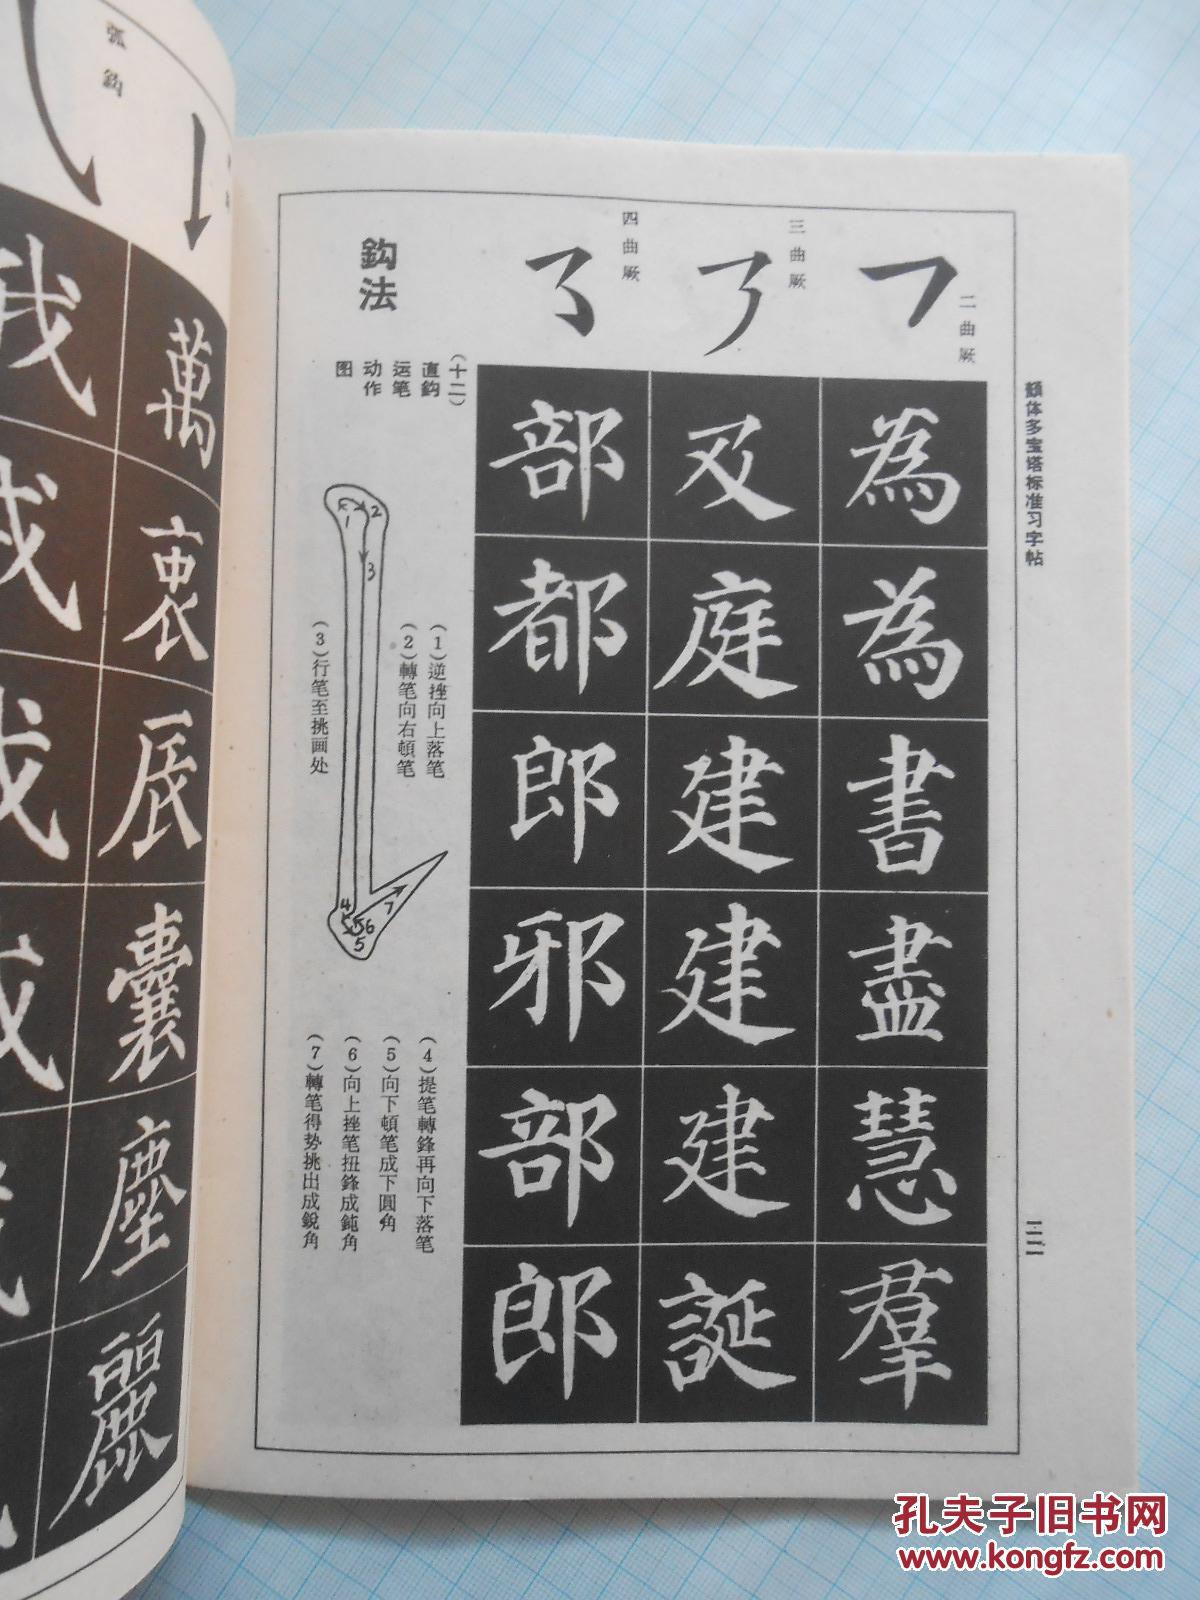 顏体多宝塔标准习字帖
二二
二曲厥
為為書盡慧羣
三曲厥
及庭建建建誕
四曲厥
部都郎邪部郎
鈎法
(十二)
直鈎
运笔
动作
图
1
2
3
4
5
6
7
(1)逆挫向上落笔
(2)轉笔向右頓笔
(3)行笔至挑画处
(4)提笔轉鋒再向下落笔
(5)向下頓笔成下圓角
(6)向上挫笔扭鋒成鈍角
(7)轉笔得势挑出成銳角
萬裏辰囊塵麗
弧鈎
孔夫子旧书网
www.kongfz.com